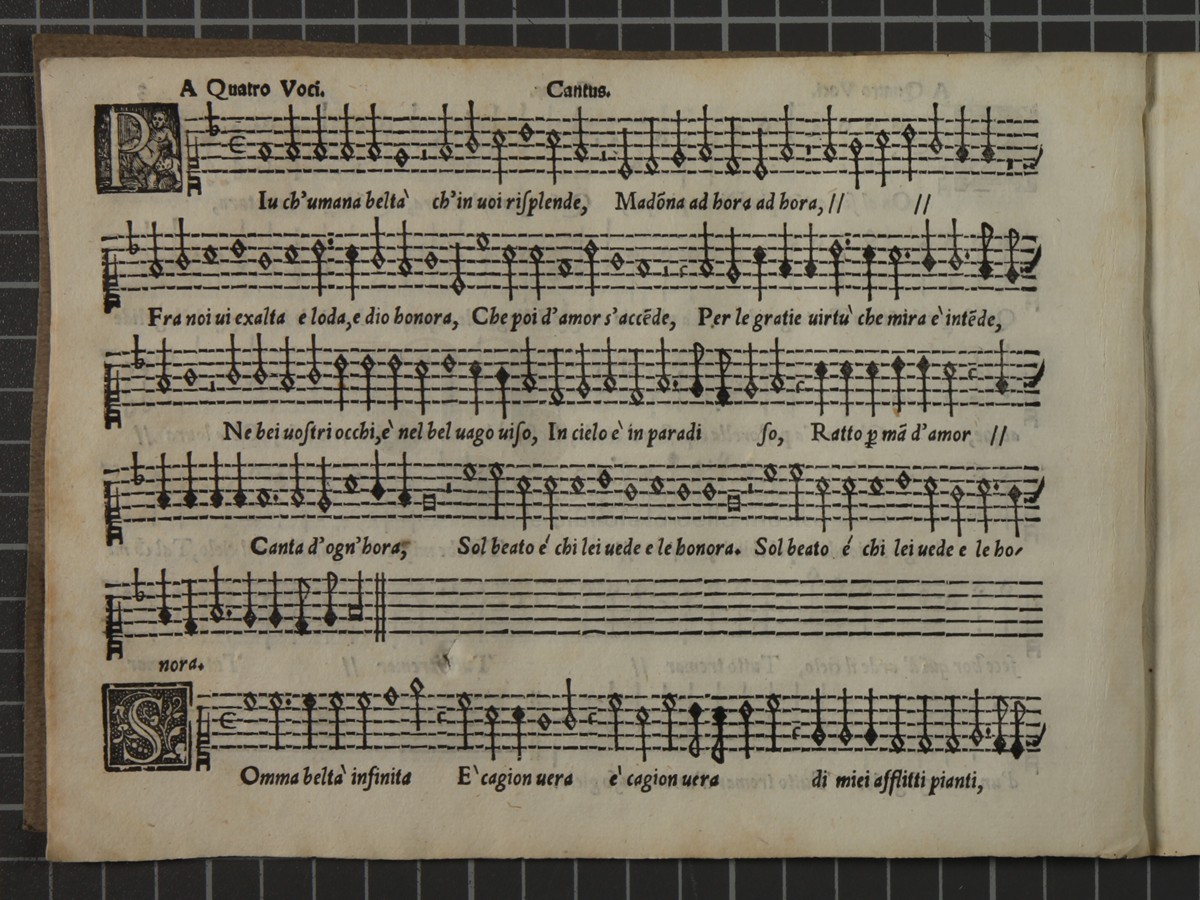 A Quatro Voci. Cantus.
R
Iu ch'umana belta` ch'in uoi riſplende, Madōna ad hora ad hora, // //
Fra noi ui exalta e loda, e dio honora, Che poi d'amor s'accēde, Per le gratie uirtu` che mira e` intēde,
Ne bei uoſtri occhi, e` nel bel uago uiſo, In cielo e` in paradi ſo, Ratto ꝑ mā d'amor //
Canta d'ogn'hora, Sol beato é chi lei uede e le honora. Sol beato é chi lei uede e le ho-
nora.
S
Omma belta` infinita E` cagion uera e` cagion uera di miei afflitti pianti,